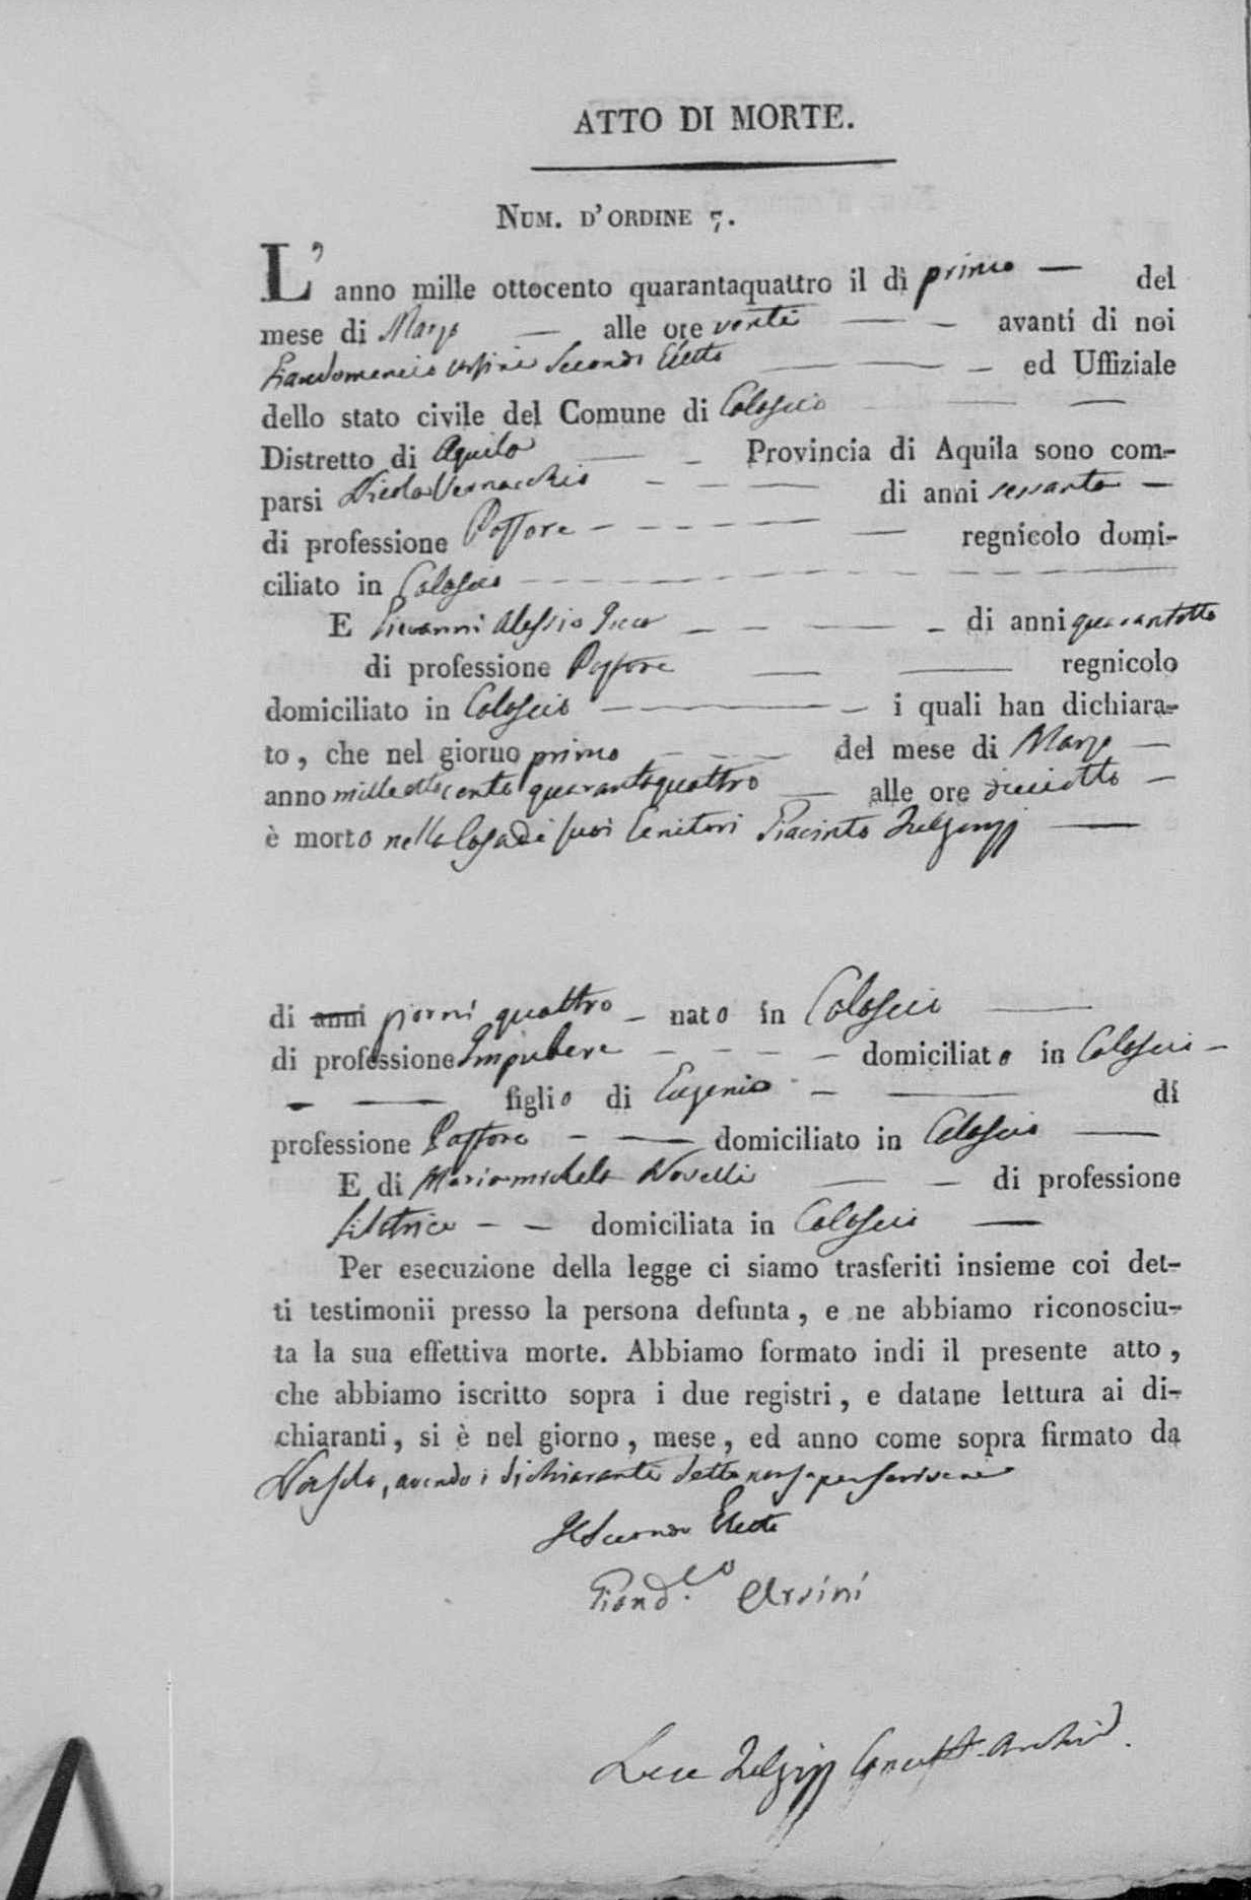 ATTO DI MORTE.
NUM. D'ORDINE 7.
L'anno mille ottocento quarantaquattro il dì primo del
mese di Marzo alle ore venti avanti di noi
Giandomenico Ursini Secondo Eletto ed Uffiziale
dello stato civile del Comune di
Distretto di Aquila Provincia di Aquila sono com-
parsi Nicola Vernacchia di anni sessanta
di professione Pastore regnicolo domi-
ciliato in
E Giovanni Alessio di anni quarantotto
di professione Pastore regnicolo
domiciliato in i quali han dichiara-
to, che nel giorno primo del mese di Marzo
anno milleottocento quarantaquattro alle ore dieciotto
è morto nella Casa di suoi Genitori Giacinto
di anni giorni quattro nato in
di professione Impubere domiciliato in
figlio di Eugenio di
professione Pastore domiciliato in
E di Mariamichela Novelli di professione
filatrice domiciliata in
Per esecuzione della legge ci siamo trasferiti insieme coi det-
ti testimonii presso la persona defunta, e ne abbiamo riconosciu-
ta la sua effettiva morte. Abbiamo formato indi il presente atto,
che abbiamo iscritto sopra i due registri, e datane lettura ai di-
chiaranti, si è nel giorno, mese, ed anno come sopra firmato da
Noi solo, avendo i dichiaranti detto non saper scrivere
Il Secondo Eletto
Giand.co Ursini